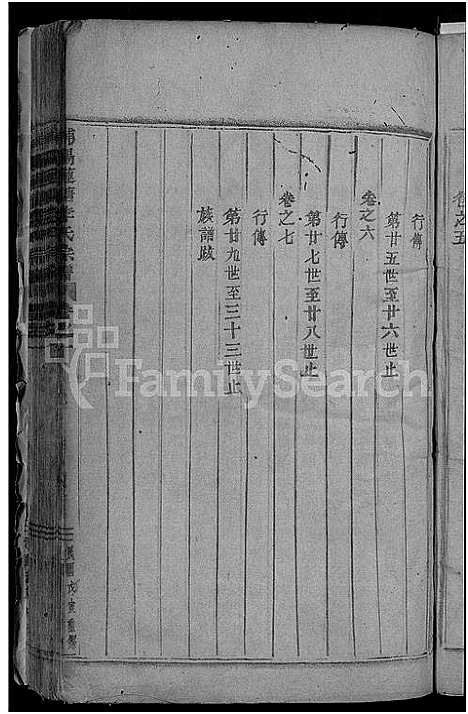 卷之五
行傳
第廿五世至廿六世止
卷之六
行傳
第廿七世至廿八世止
卷之七
行傳
第廿九世至三十三世止
族譜跋
氏宗譜
戊寅重修
FamilySearch